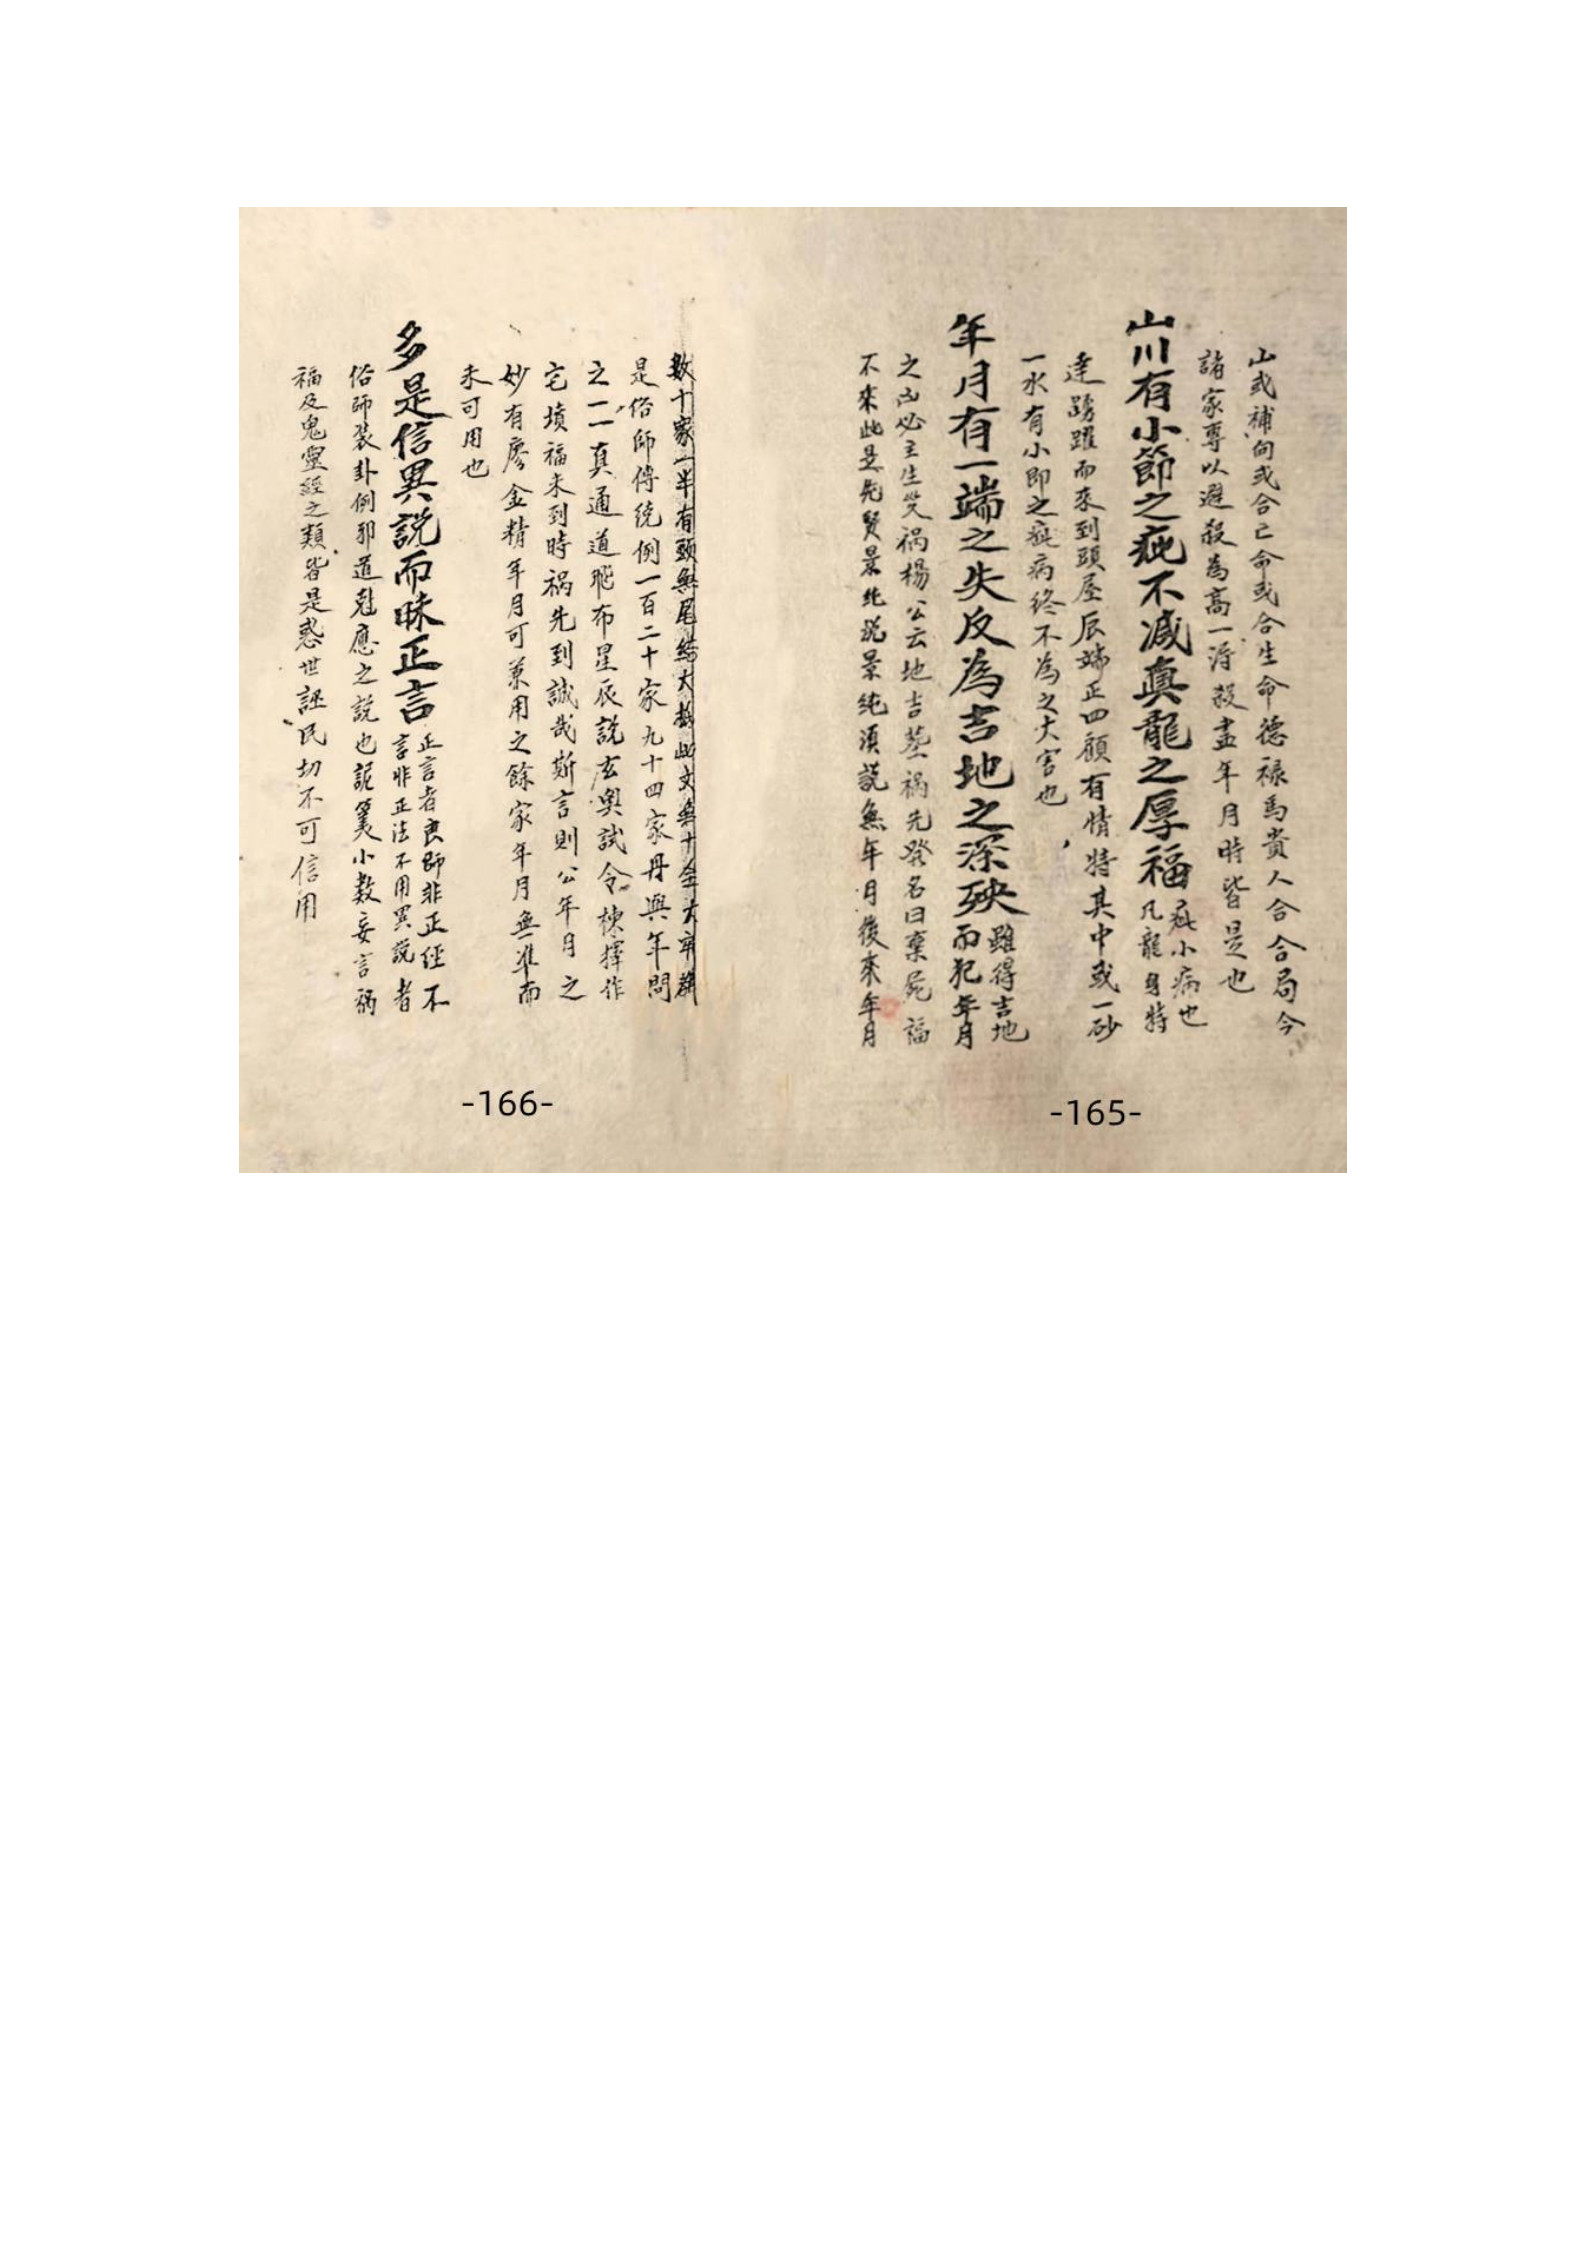 山或補向或合亡命或合生命德祿馬貴人合合局今
諸家專以避殺為高一淂殺盡年月時皆是也
山川有小節之疵不减真龍之厚福疵小病也
凡龍身特
達踴躍而來到頭屋辰端正四顧有情特其中或一砂
一水有小即之疵病終不為之大害也
年月有一端之失反為吉地之深殃雖得吉地
而犯年月
之凶必主生災祸楊公云地吉塟祸先發名曰棄屍福
不來此是先賢景純説景純湏説無年月後來年月
-165-
數十家一半有頭無尾結大抵此文無十全大
是俗師傳統例一百二十家九十四家丹興年問
之一一真通道飛布星辰説玄奥試令揀擇作
宅墳福未到時祸先到誠哉斯言則公年月之
妙有廖金精年月可兼用之餘家年月無准而
未可用也
多是信異説而昧正言正言者良師非正經不
言非正法不用異説者
俗師装卦例邪道尅應之説也説篡小數妄言祸
福及鬼靈經之類皆是惑世誣民切不可信用
-166-